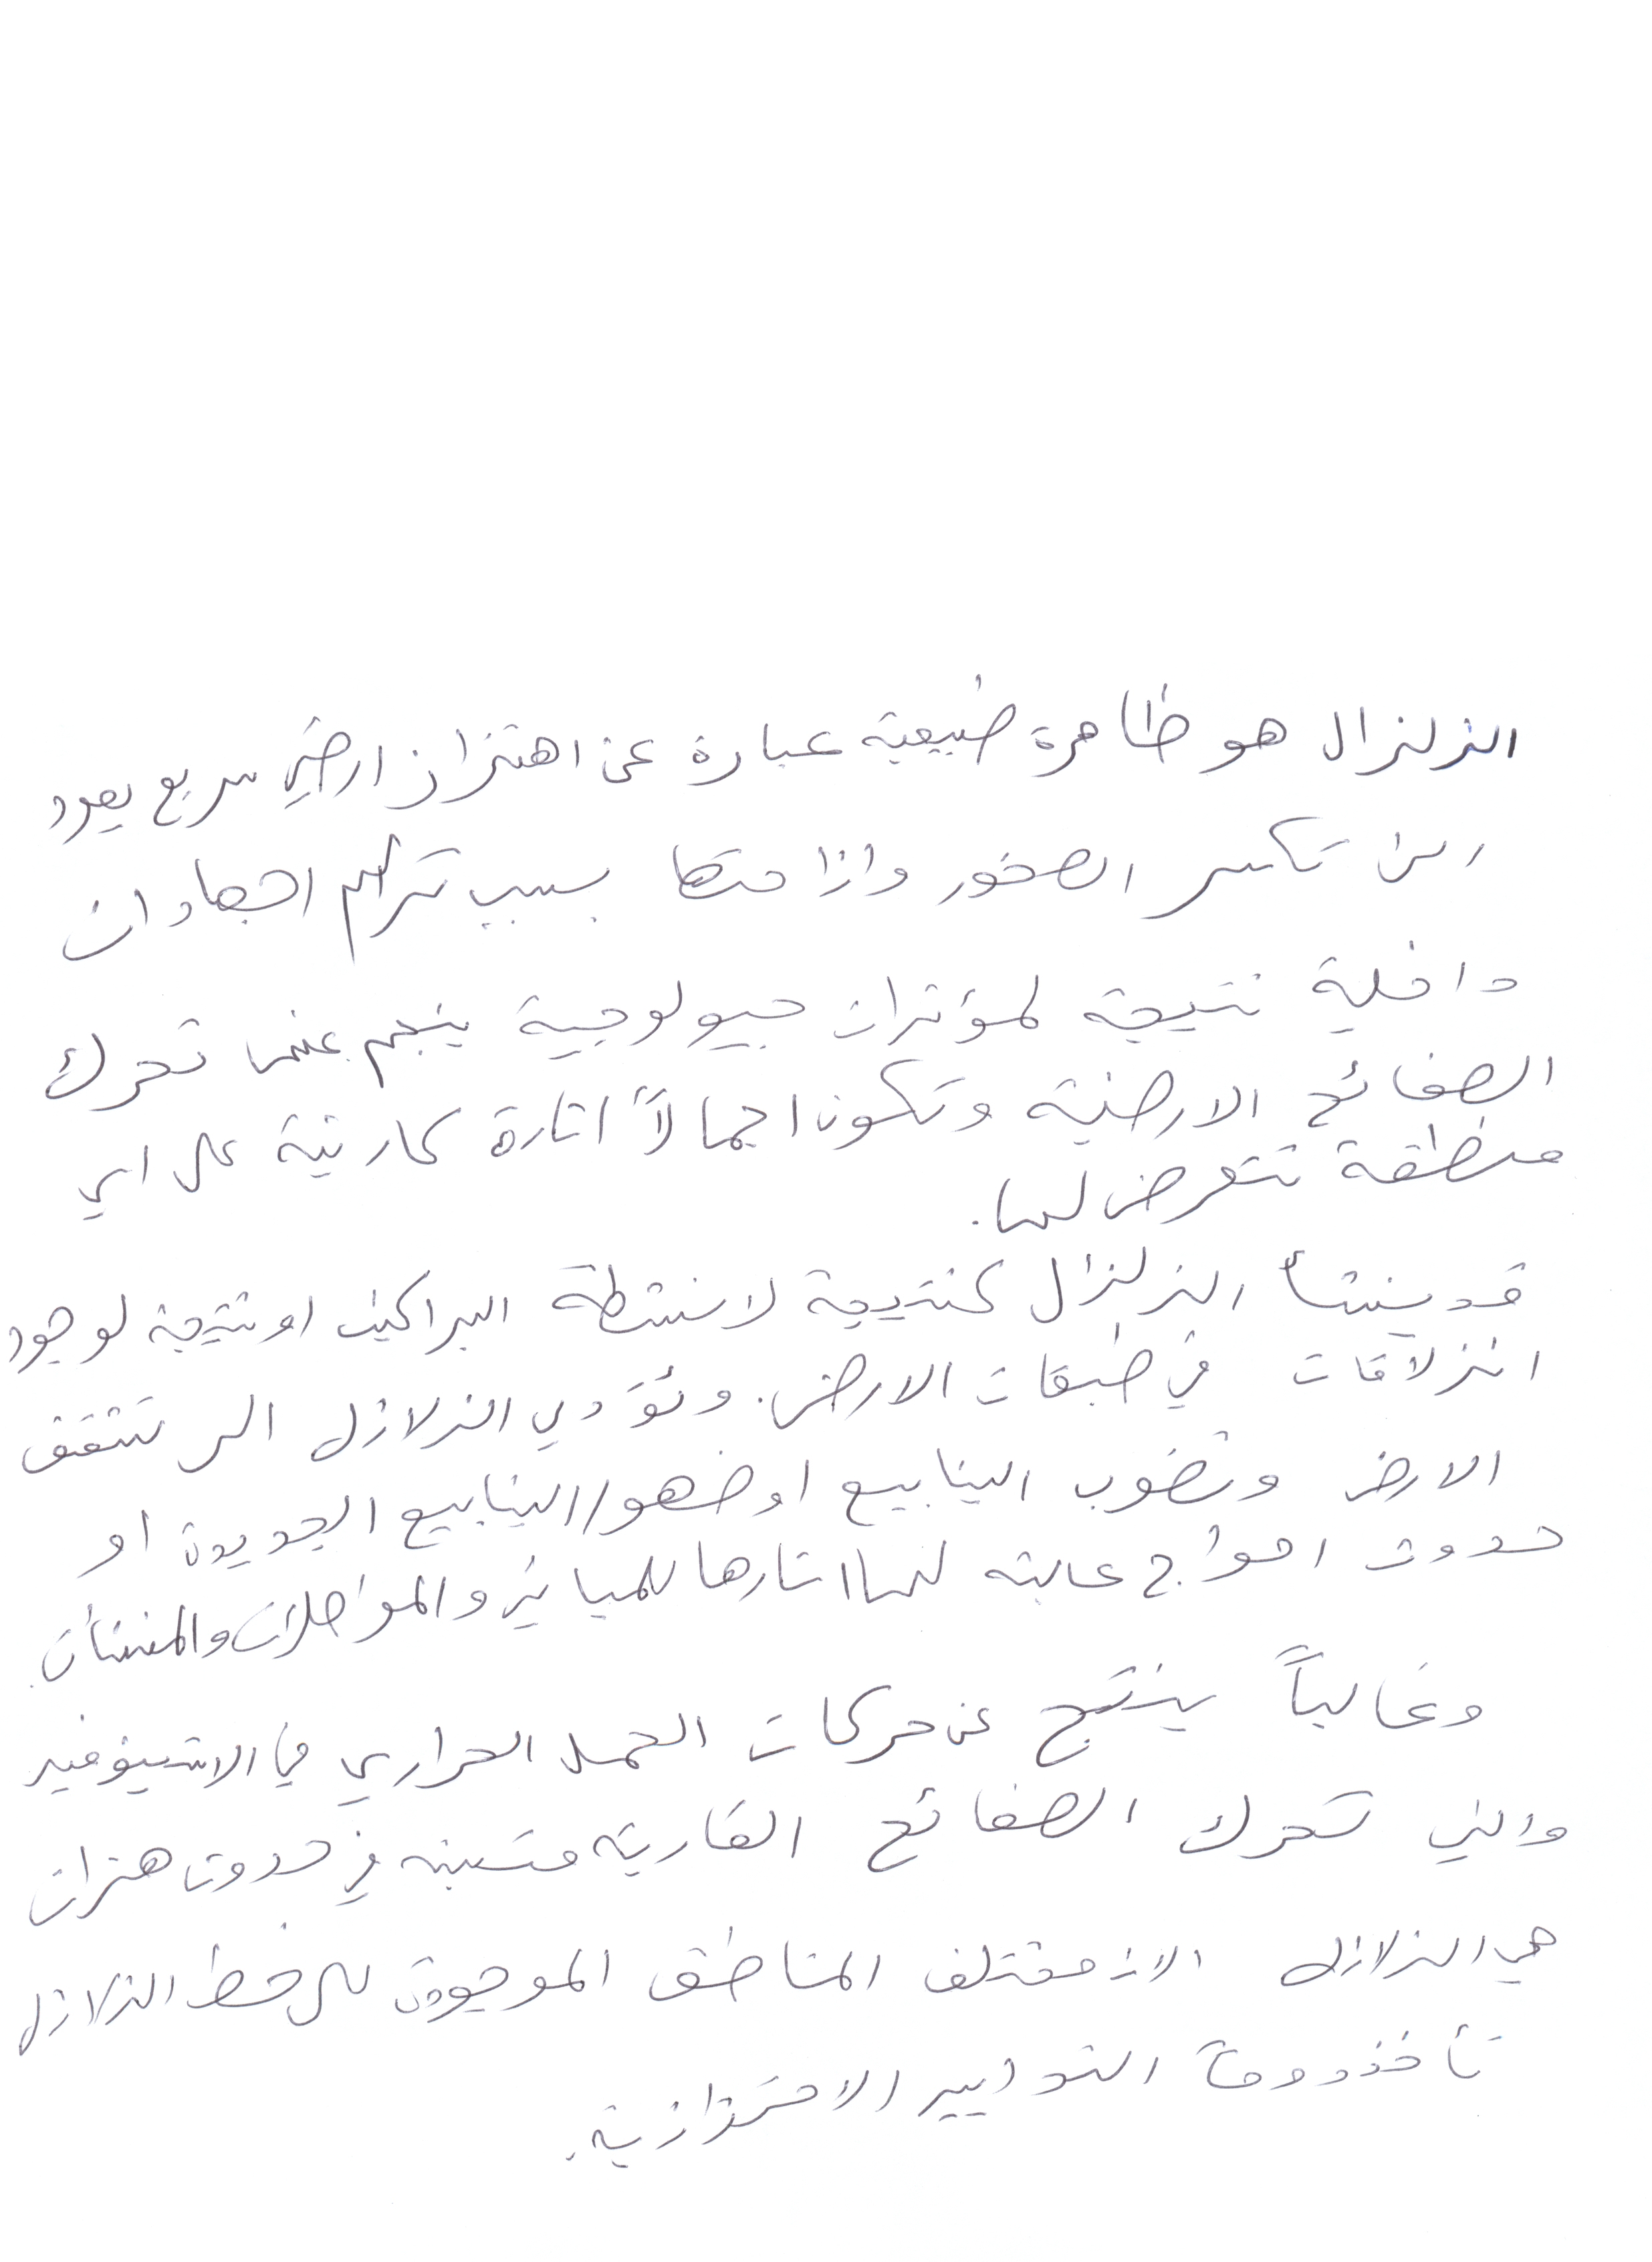 الزلزال هو ظاهرة طبيعية عبارة عن اهتزاز ارضي سريع يعود
الى تكسر الصخور وازاحتها بسبب تراكم اجهادات
داخلية نتيجة لمؤثرات جيولوجية ينجم عنها تحرك
الصفائح الارضية وتكون اجمالاً اثارة كارثية على اي
منطقة تتعرض لها.
قد ينشأ الزلزال كنتيجة لانشطة البراكين او نتيجة لوجود
انزلاقات في طبقات الارض. وتؤدي الزلازل الى تشقق
الارض ونضوب الينابيع او ضهور الينابيع الجديدة او
حدوث امواج عالية لها اثارها للمباني والمواصلات والمنشأت.
وغالباً ينتج عن حركات الحمل الحراري في الاثينوفير
والتي تحرك الصفائح القارية متسببه في حدوث هزات
هي الزلازل الان مختلف المناطق الموجودة على خط الزلازل
تأخذ دوماً التدابير الاحترازية.